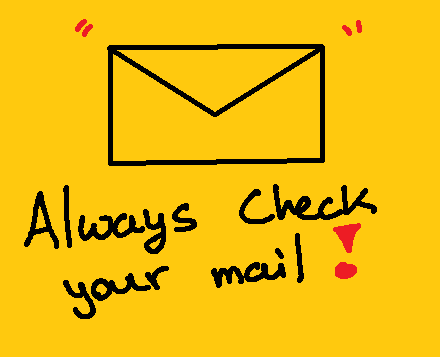 Always check
your mail!